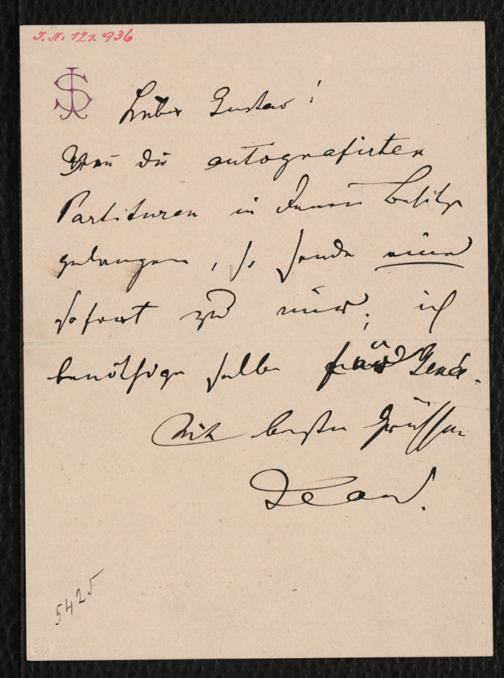 I.N. 121.936
JS
Lieber Gustav!
Wenn die autografirten
Partituren in Deinen Besitz
gelangen, so sende eine
sofort zu mir, ich
benöthige selbe für Genée.
Mit besten Grüssen
Jean.
5425